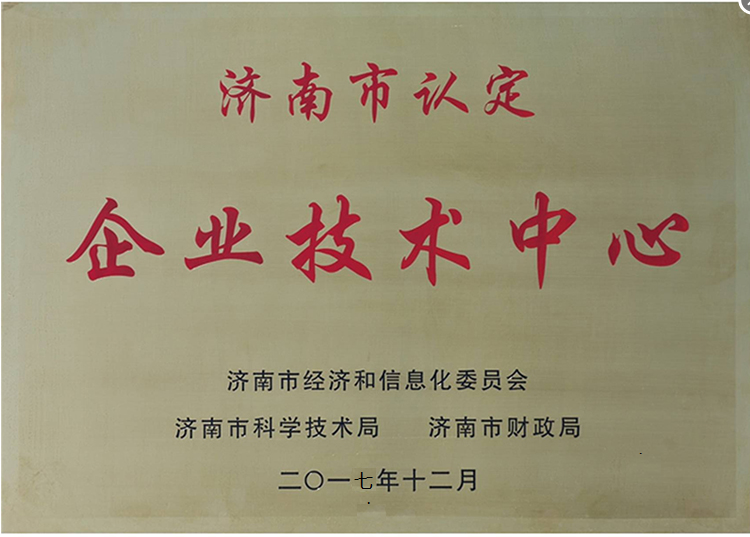 济南市认定
企业技术中心
济南市经济和信息化委员会
济南市科学技术局 济南市财政局
二〇一七年十二月